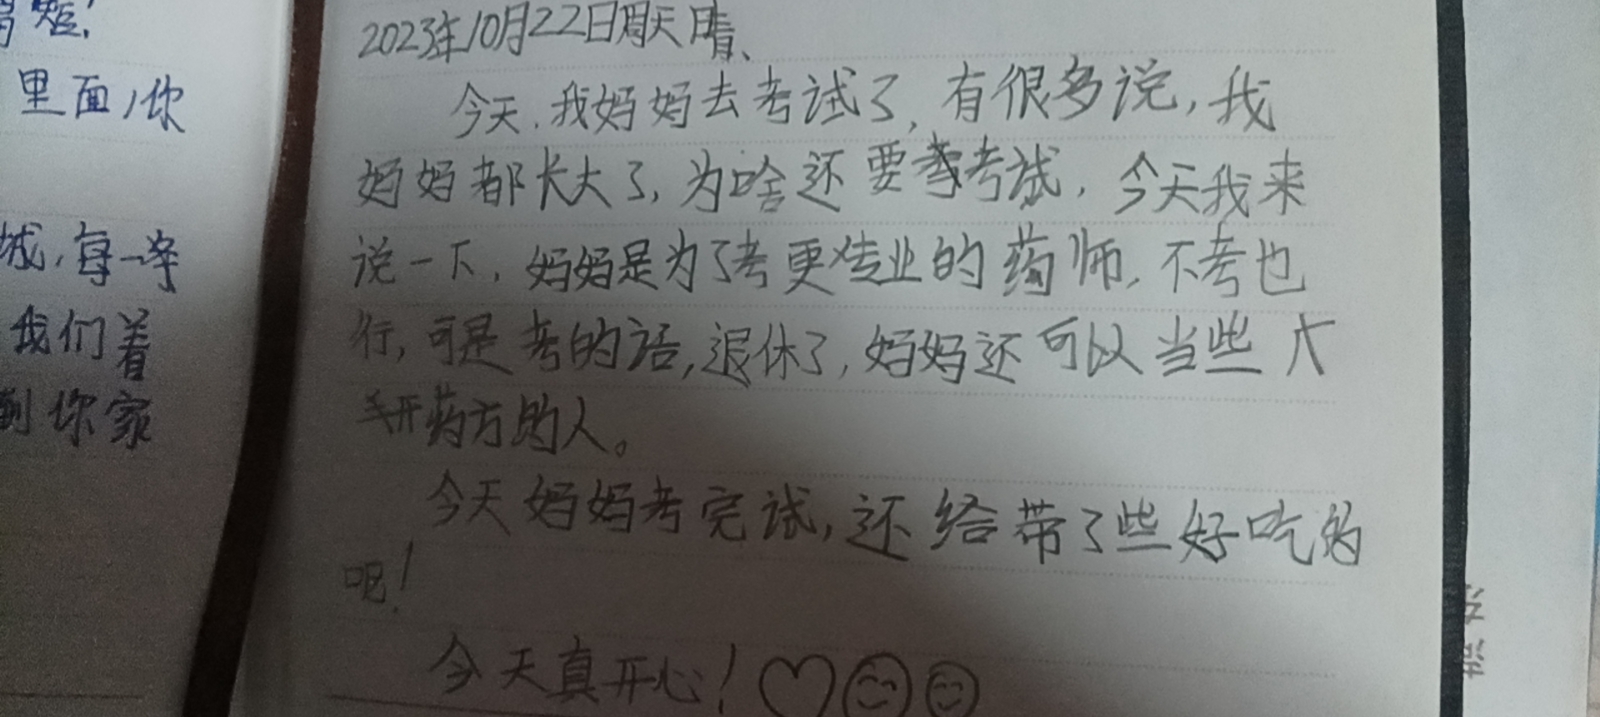 里面,你
城,每一
我们着
到你家
2023年10月22日周天 晴、
今天.我妈妈去考试了,有很多说,我
妈妈都长大了,为啥还要考试,今天我来
说一下,妈妈是为了考更专业的药师,不考也
行,可是考的话,退休了,妈妈还可以当些
开药方的人。
今天妈妈考完试,还给带了些好吃的
呢!
今天真开心!